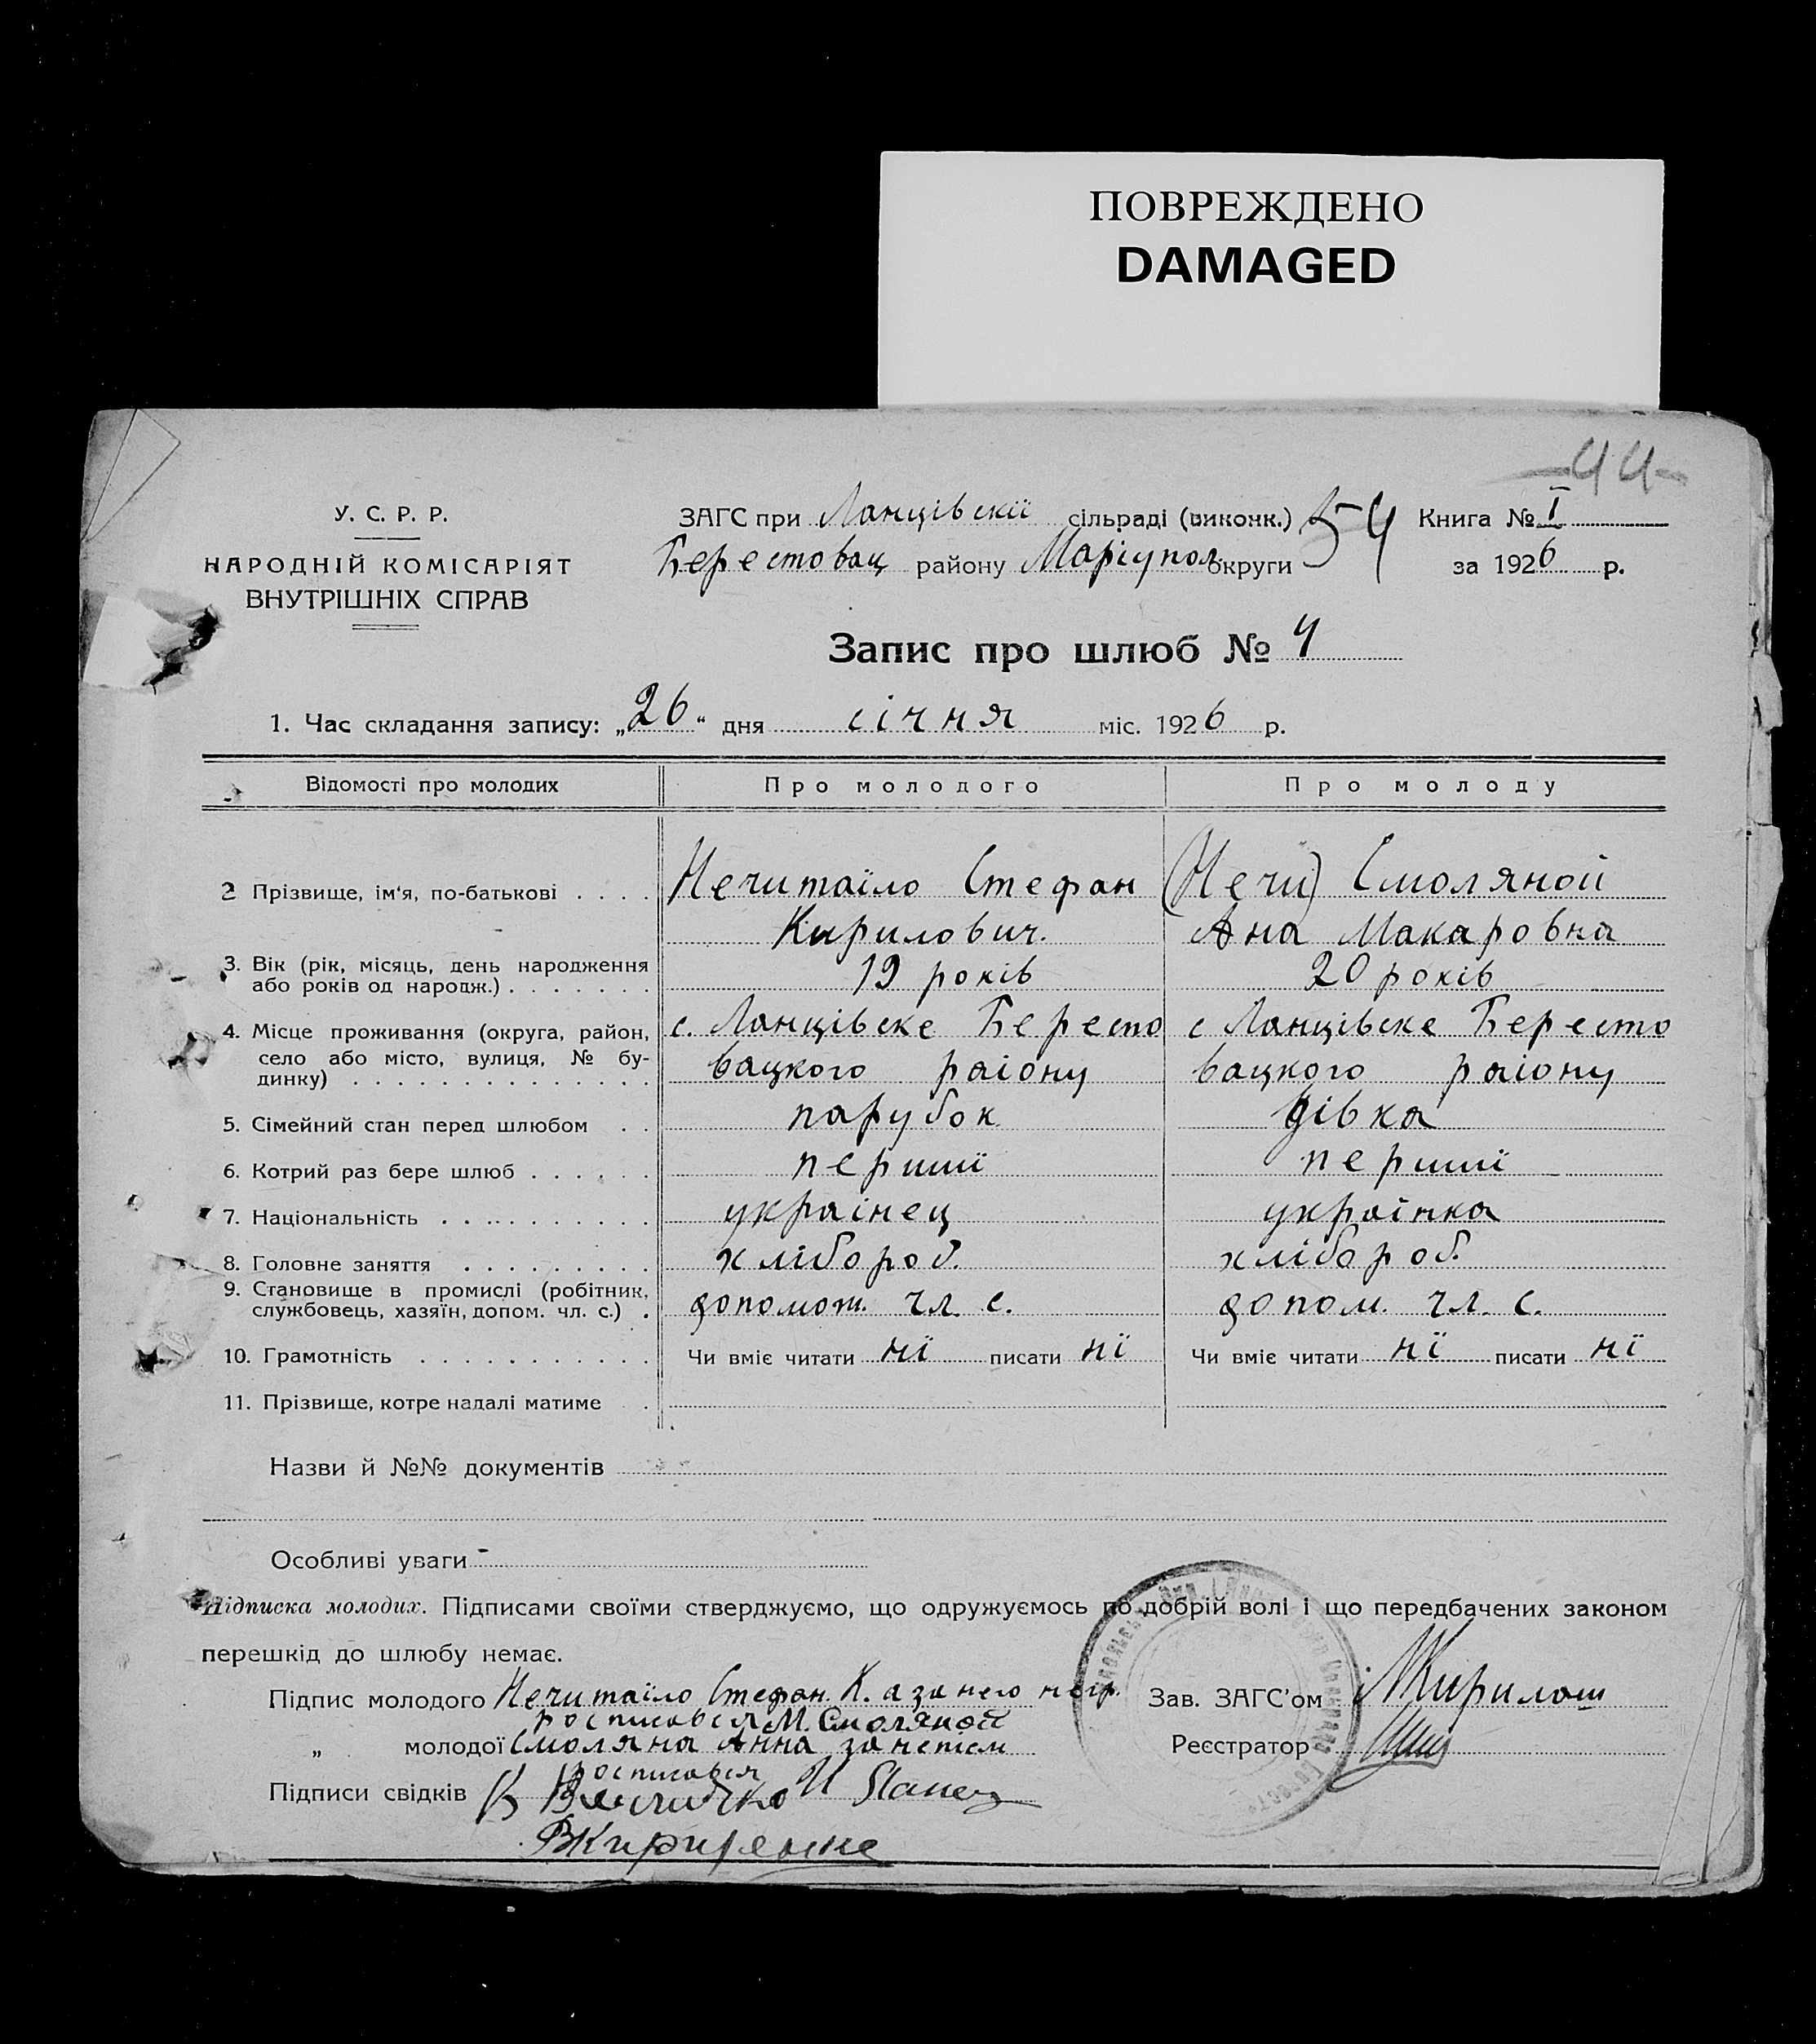 ПОВРЕЖДЕНО
DAMAGED
-44-
У. С. Р. Р.
НАРОДНІЙ КОМІСАРІЯТ
ВНУТРІШНІХ СПРАВ
ЗАГС при Ланцівскії сільраді (виконк.) 54 Книга № I
Берестовац району Маріупол округи за 1926 р.
Запис про шлюб № 4
1. Час складання запису: „26“ дня січня міс. 1926 р.
Відомості про молодих Про молодого Про молоду
2 Прізвище, ім'я, по-батькові . . . . Нечитаїло Стефан (Нечи) Смоляной
Кирилович. Ана Макаровна
3. Вік (рік, місяць, день народження
або років од народж.) . . . . . . . 19 років 20 років
4. Місце проживання (округа, район, с. Ланцівске Бересто с Ланцівске Бересто
село або місто, вулиця, № бу-
динку) . . . . . . . . . . . . . . вацкого раіону вацкого раіону
5. Сімейний стан перед шлюбом . . парубок дівка
6. Котрий раз бере шлюб . . . . . . перший перший
7. Національність . . . . . . . . . . украінец украінка
8. Головне заняття . . . . . . . . . хлібороб. хлібороб.
9. Становище в промислі (робітник,
службовець, хазяїн, допом. чл. с.) . допомож. чл. с. допом. чл. с.
10. Грамотність . . . . . . . . . . . Чи вміє читати нї писати нї Чи вміє читати нї писати нї
11. Прізвище, котре надалі матиме .
Назви й №№ документів
Особливі уваги -
Підписка молодих. Підписами своїми стверджуємо, що одружуємось по добрій волі і що передбачених законом
перешкід до шлюбу немає.
Підпис молодого Нечитаїло Стефан. К. а за него негр. Зав. ЗАГС'ом
росписався М. Смоляной
„ молодої Смоляна Анна за неписм Реєстратор
росписався
Підписи свідків